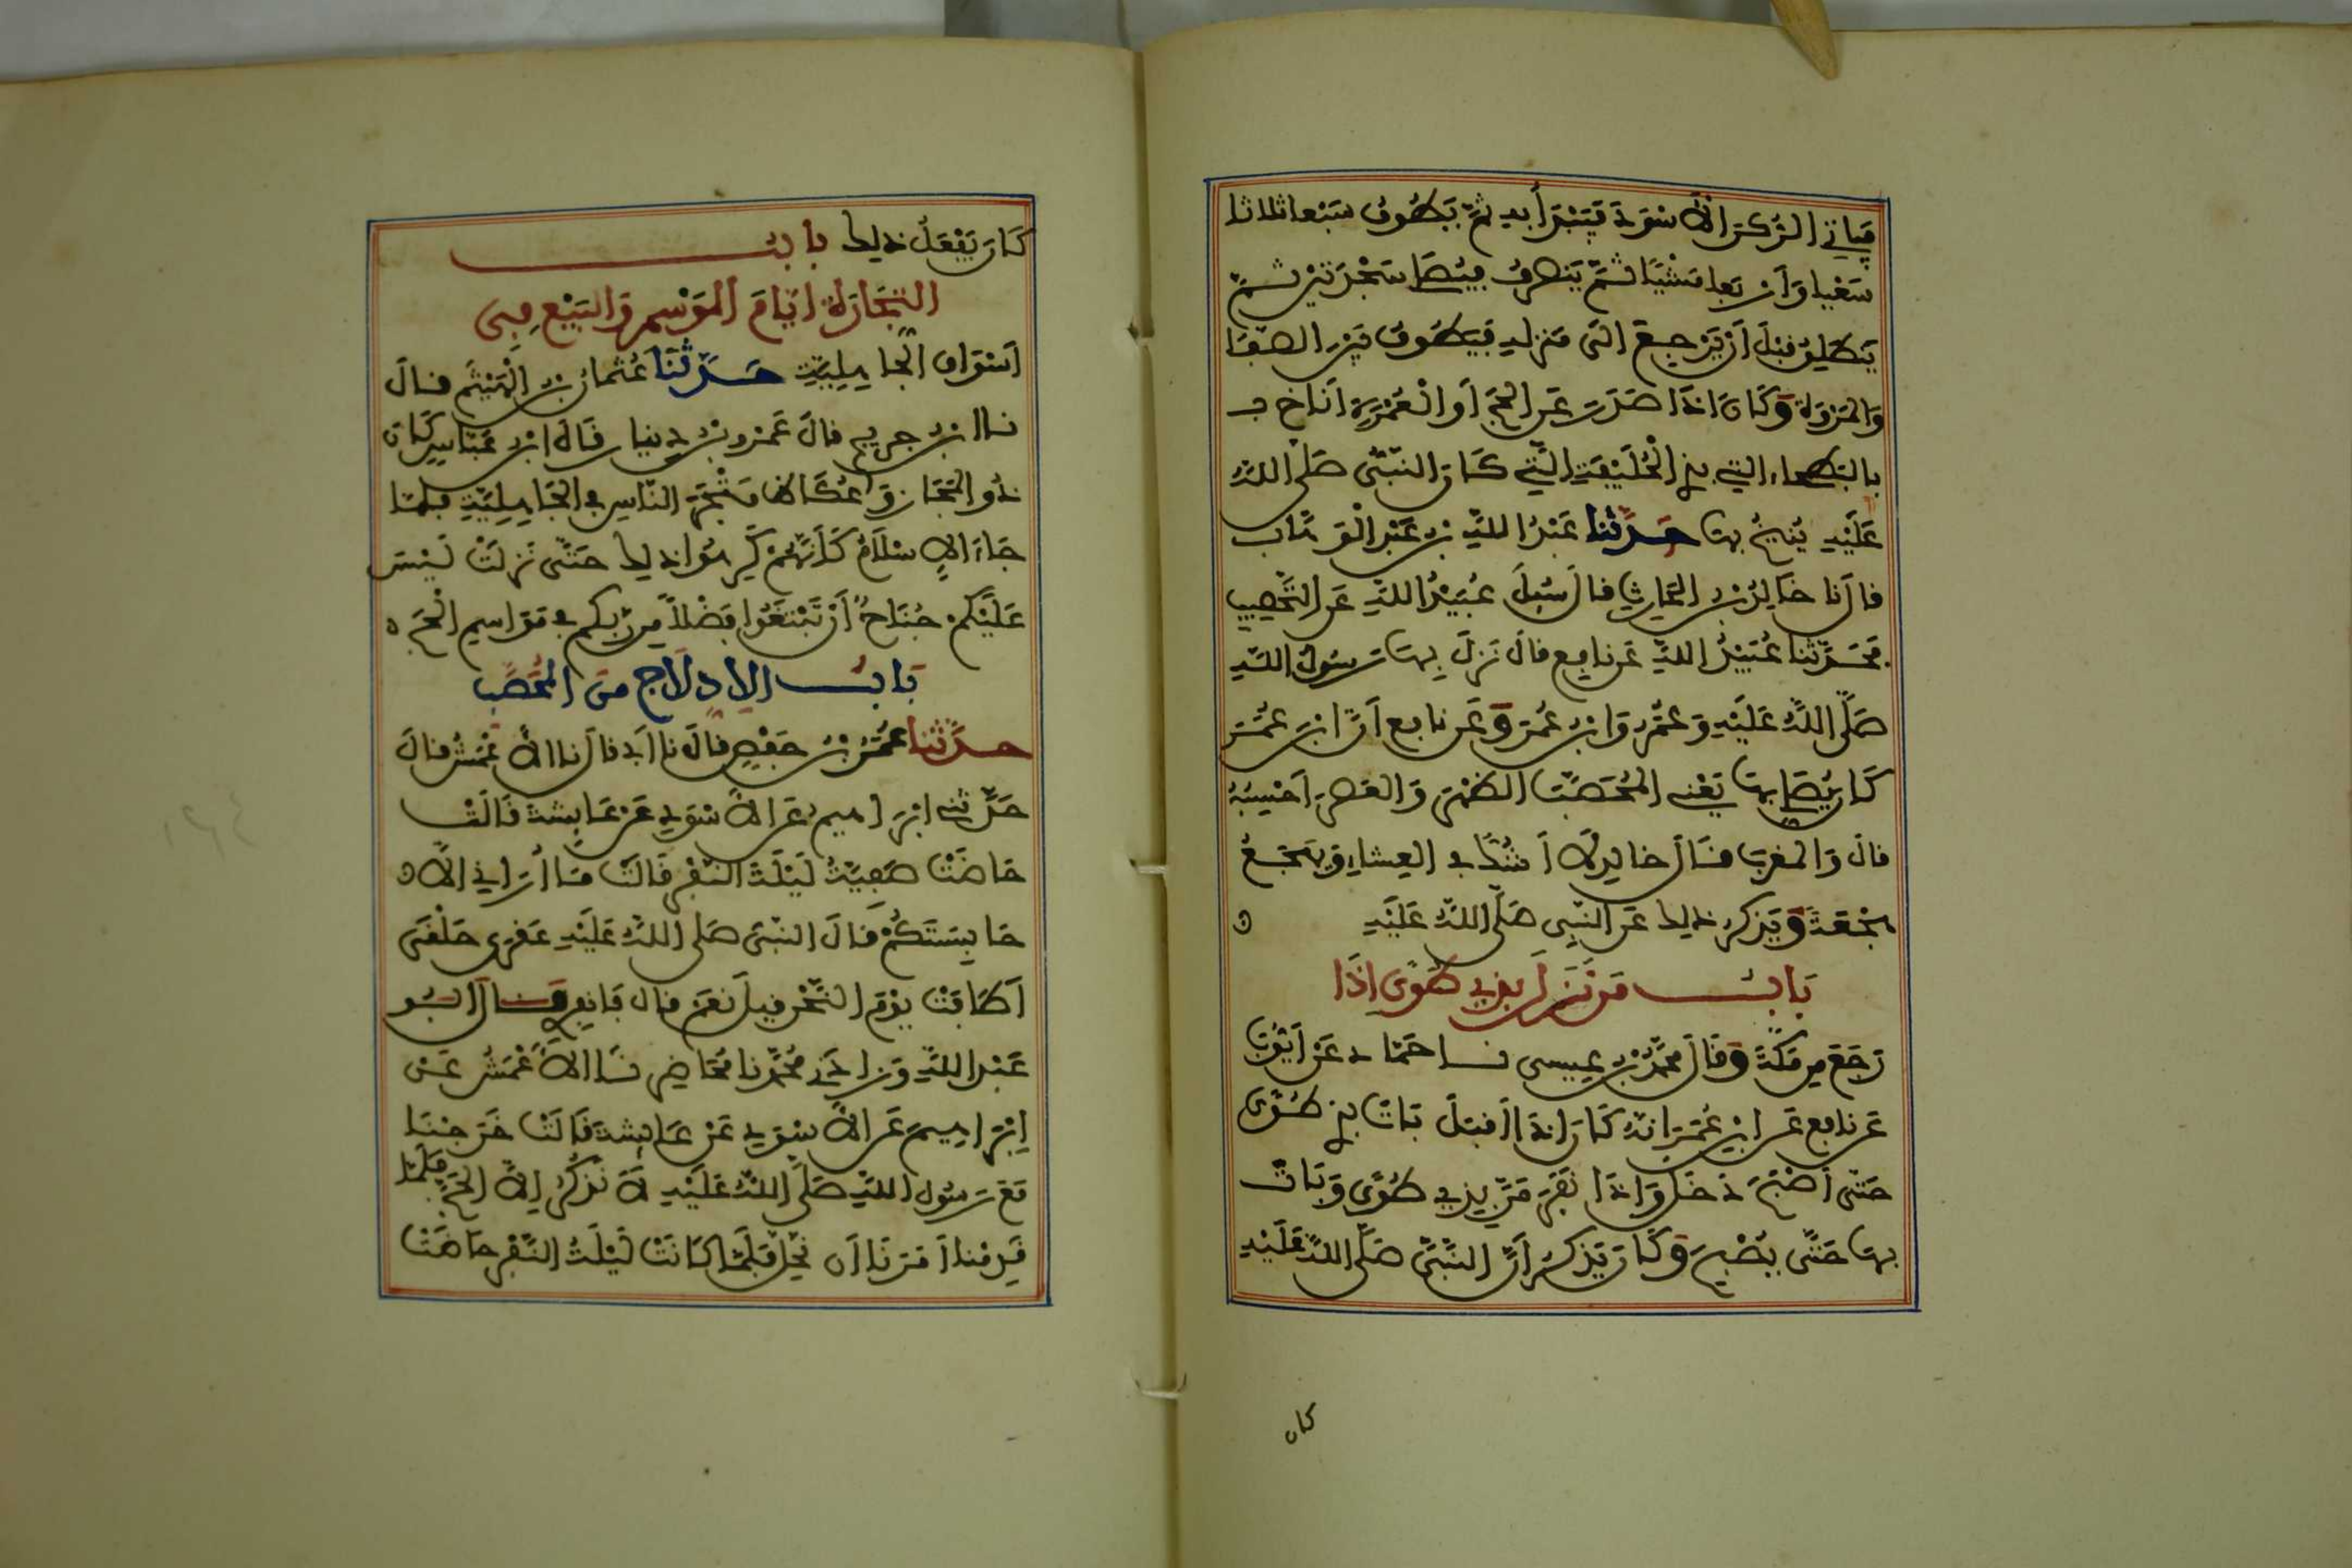 فياتي الركن الأسود فيبدأ به ثم يطوف سبعا ثلاثا
سعيا وأربعا مشيا ثم ينصرف فيصلي سجدتين ثم
ينطلق قبل أن يرجع إلى منزله فيطوف بين الصفا
والمروة وكان إذا صدر عن الحج أو العمرة أناخ
بالبطحاء التي بذي الحليفة التي كان النبي صلى الله
عليه ينيخ بها حدثنا عبد الله بن عبد الوهاب
قال نا خالد بن الحارث قال سئل عبيد الله عن التحصيب
فحدثنا عبيد الله عن نافع قال نزل بها رسول الله
صلى الله عليه وعمر وابن عمر وعن نافع أن ابن عمر
كان يصلي بها يعني المحصب الظهر والعصر أحسبه
قال والمغرب قال خالد لا أشك في العشاء ويهجع
هجعة ويذكر ذلك عن النبي صلى الله عليه
باب من نزل بذي طوى إذا
رجع من مكة وقال محمد بن عيسى نا حماد عن أيوب
عن نافع عن ابن عمر انه كان إذا أقبل بات بذي طوى
حتى أصبح دخل وإذا نفر مر بذي طوى وبات
بها حتى يصبح وكان يذكر أن النبي صلى الله عليه
كان
كان يفعل ذلك باب
التجارة ايام الموسم والبيع في
أسواق الجاهلية حدثنا عثمان بن الهيثم قال
نا ابن جريج قال عمرو بن دينار قال ابن عباس كان
ذو المجاز وعكاظ متجر الناس في الجاهلية فلما
جاء الإسلام كأنهم كرهوا ذلك حتى نزلت ليس
عليكم جناح أن تبتغوا فضلا من ربكم في مواسم الحج
باب الادلاج من المحصب
حدثنا عمر بن حفص قال نا أبي قال نا الأعمش قال
حدثني ابرهيم عن الأسود عن عايشة قالت
حاضت صفية ليلة النفر فقالت ما أراني الا
حابستكم قال النبي صلى الله عليه عقرى حلقى
أطافت يوم النحر قيل نعم قال فانفري قال أبو
عبد الله وزادني محمد نا محاضر نا الأعمش عن
ابرهيم عن الأسود عن عايشة قالت خرجنا
مع رسول الله صلى الله عليه لا نذكر إلا الحج فلما
قدمنا أمرنا ان نحل فلما كانت ليلة النفر حاضت